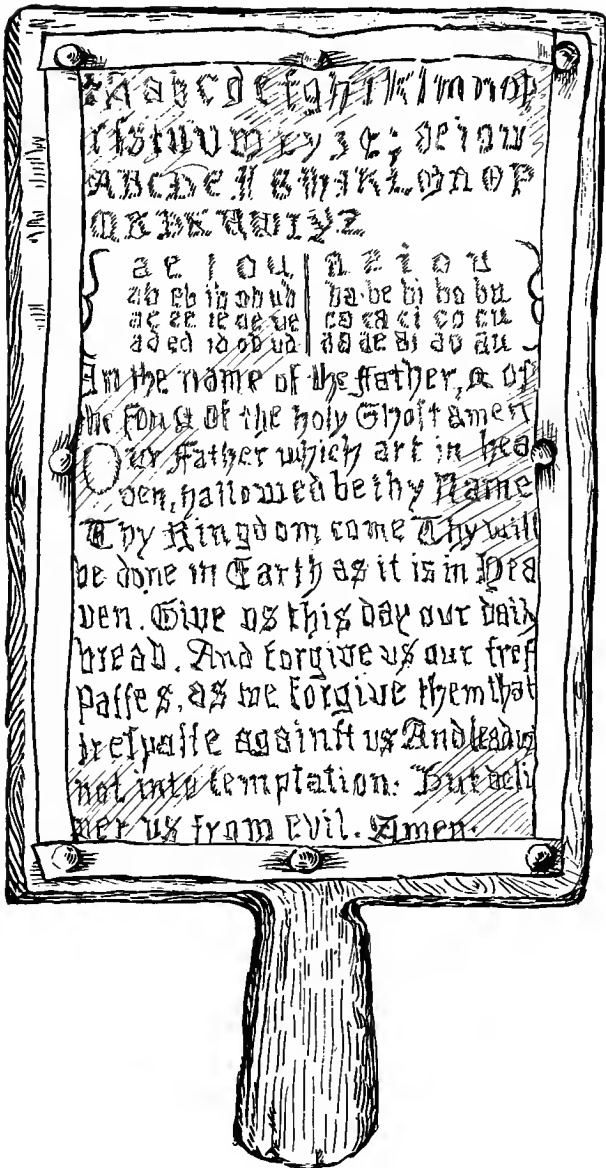 a b c d e f g h i k l m n o p
r ſ s t u v w x y z &; a e i o u
A B C D E F G H I K L M N O P
Q R S T U W X Y Z
a e i o u | a e i o u
ab eb ib ob ub | ba be bi bo bu
ac ec ic oc uc | ca ce ci co cu
ad ed id od ud | da de di do du
In the name of the Father, & of
the ſon & of the holy Ghoſt amen
Our Father which art in hea
ven, hallowed be thy Name
Thy Kingdom come Thy will
be done in Earth as it is in Hea
ven. Give us this day our daily
bread. And forgive us our treſ
paſſes, as we forgive them that
treſpaſſe againſt us And lead us
not into temptation: But deli
ver us from Evil. Amen.